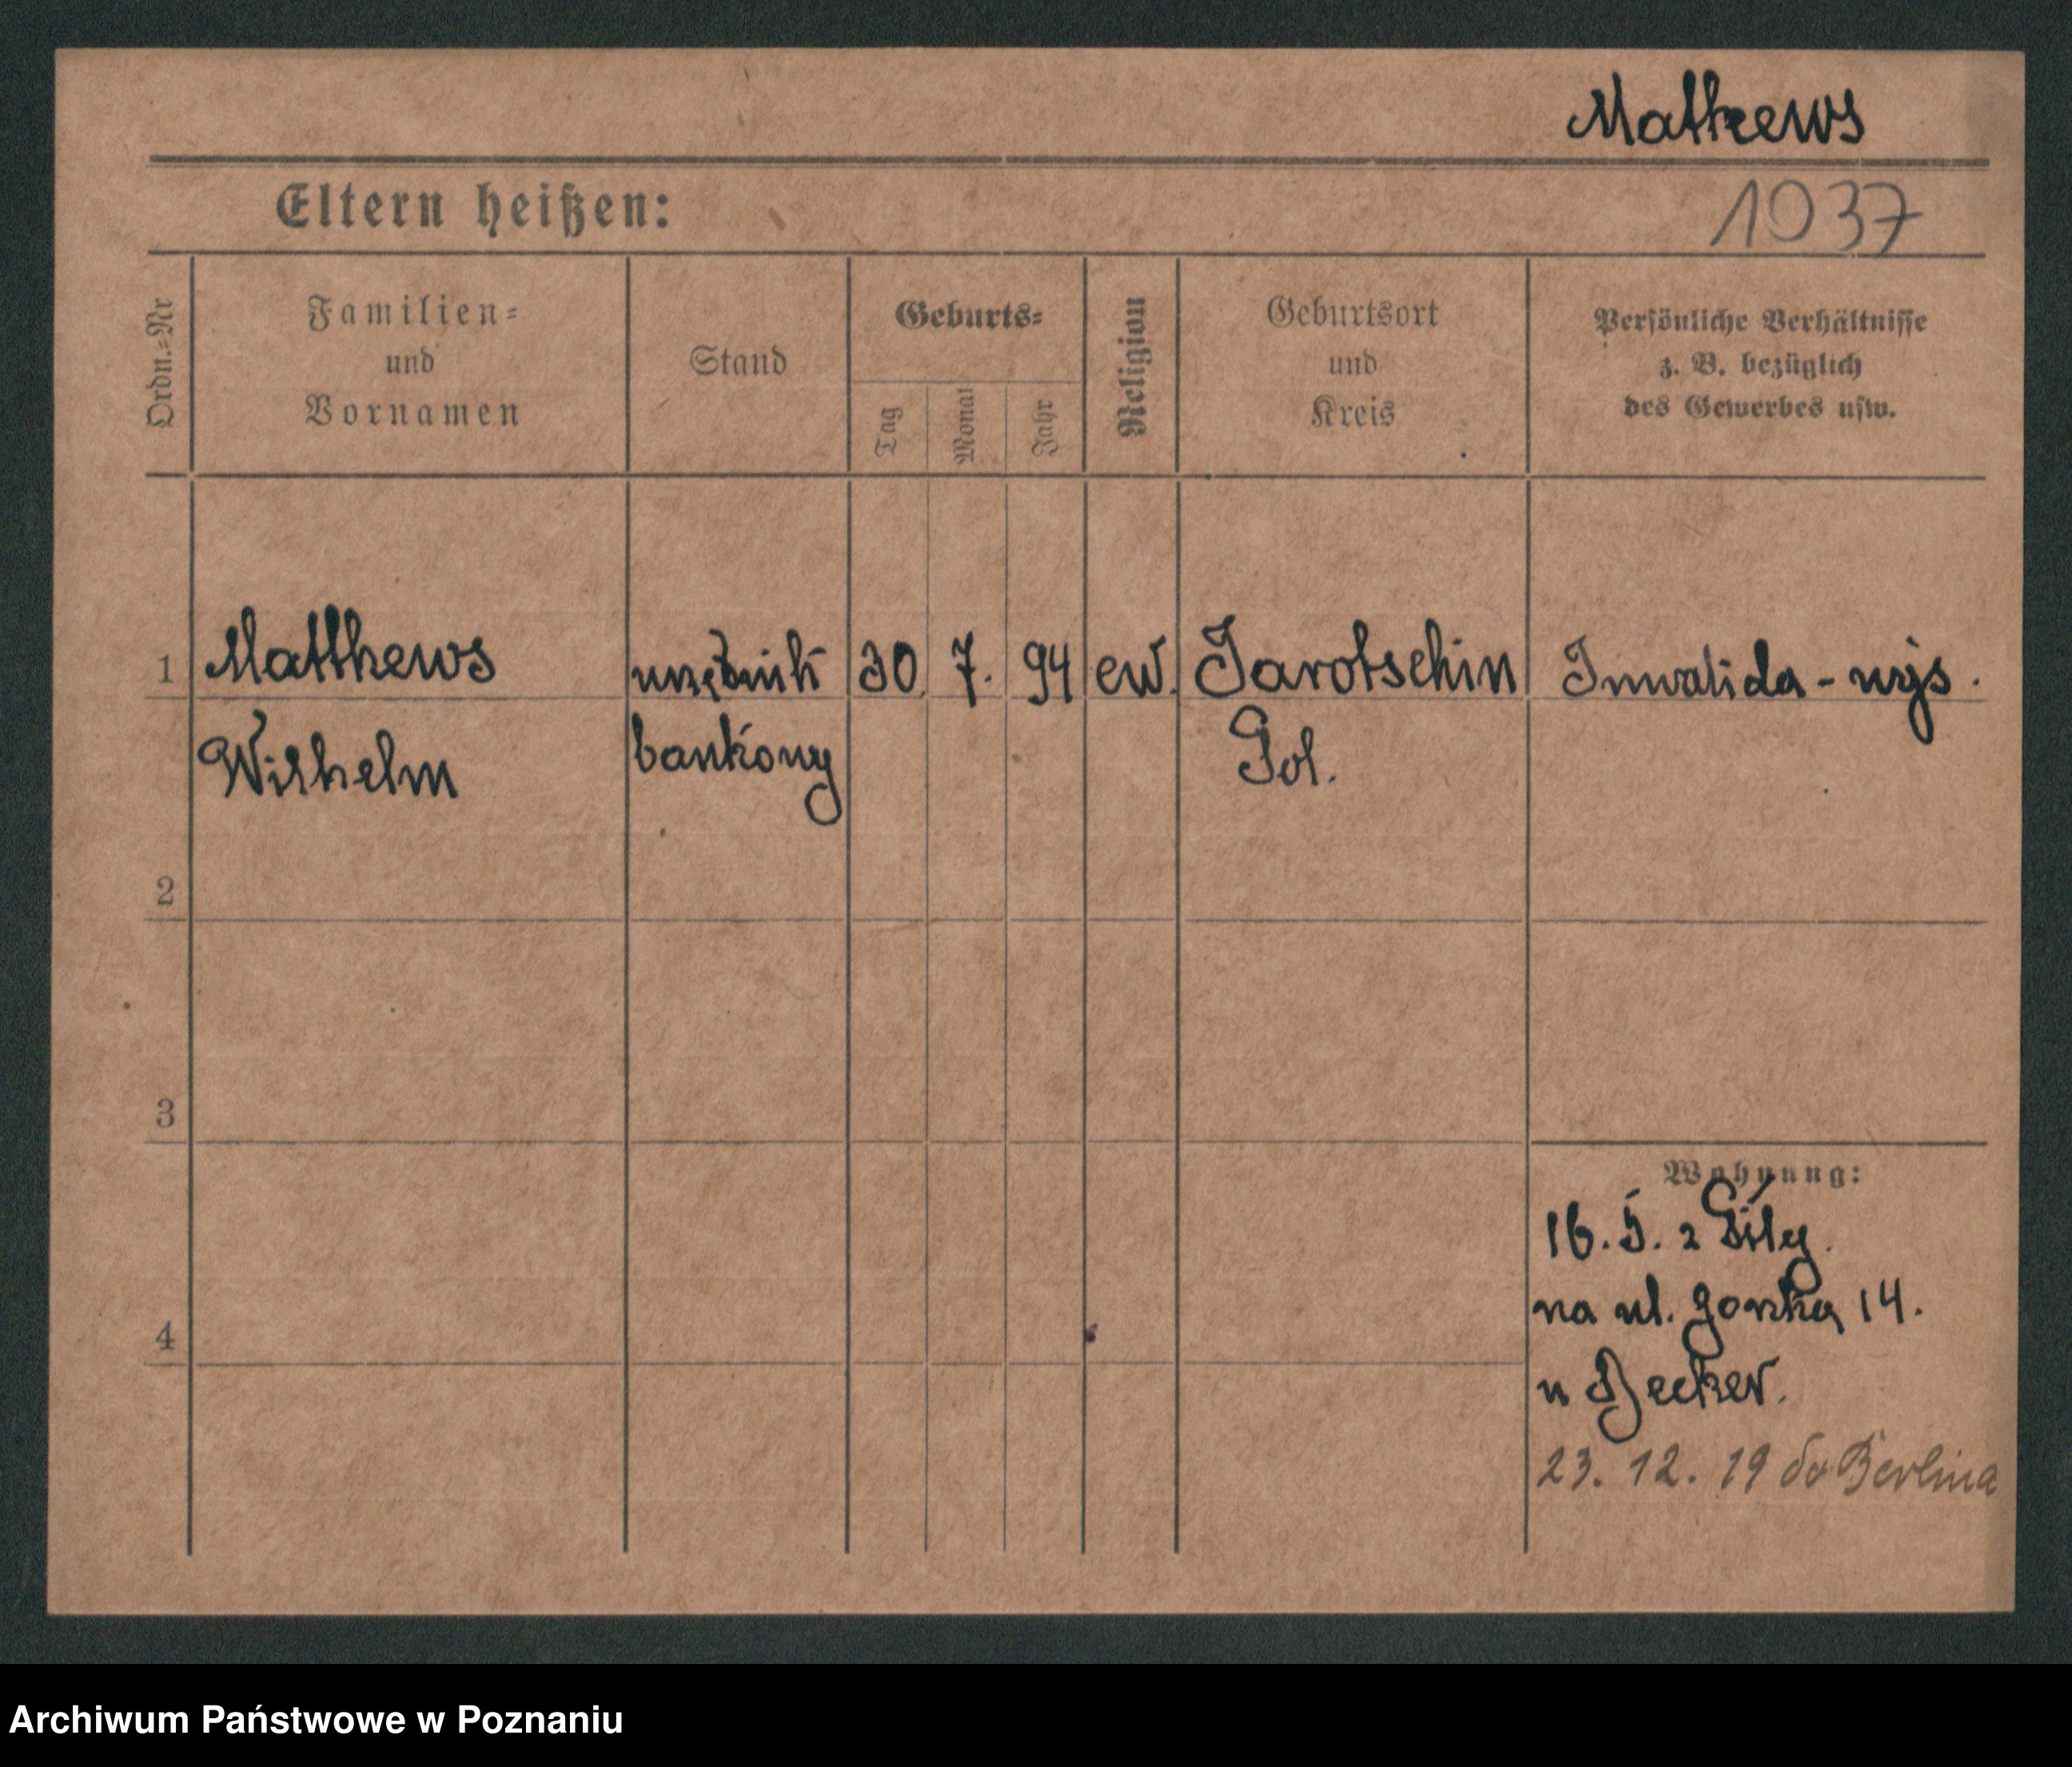 Mathews
Eltern heißen:
1037
Ordn.=Nr
Familien=
und
Vornamen
Stand
Geburts=
Tag
Monat
Jahr
Religion
Geburtsort
und
Kreis
Persönliche Verhältnisse
z. B. bezüglich
des Gewerbes usw.
1 Matthews urzędnik 30. 7. 94 ew. Jarotschin Inwalida - wojs.
Wilhelm bankowy Pol.
2
3
Wohnung:
16. 5. z Piły.
na ul. 14.
4
u Becker.
23. 12. 19 do Berlina
Archiwum Państwowe w Poznaniu